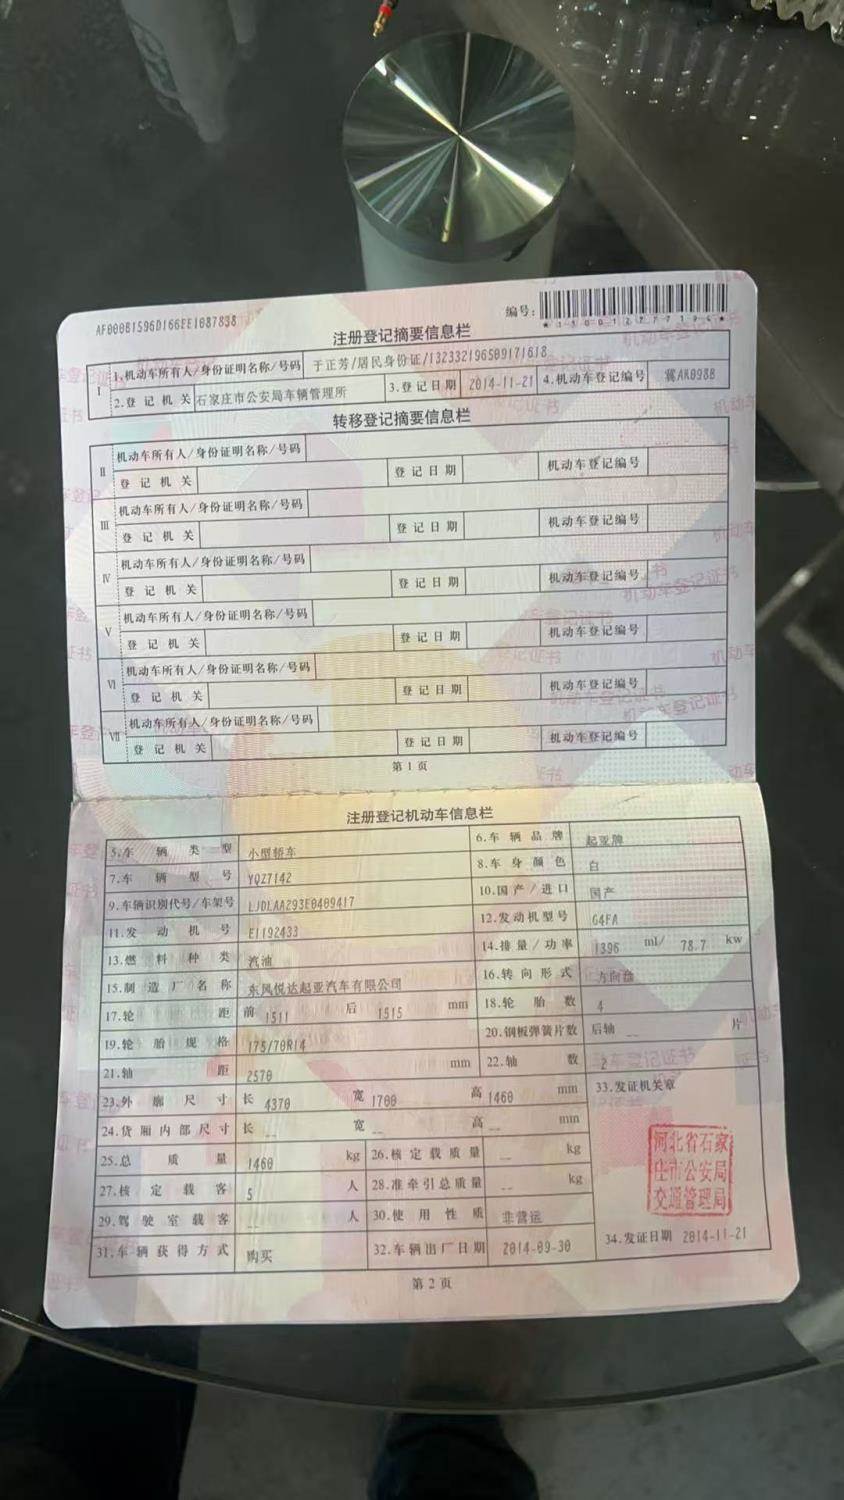 AF000B1596D166EE1087838
编号:
注册登记摘要信息栏
Ⅰ 1.机动车所有人/身份证明名称/号码 于正芳/居民身份证/132332196509171618
2.登记机关 石家庄市公安局车辆管理所 3.登记日期 2014-11-21 4.机动车登记编号 冀AK098B
转移登记摘要信息栏
Ⅱ 机动车所有人/身份证明名称/号码
登记机关 登记日期 机动车登记编号
Ⅲ 机动车所有人/身份证明名称/号码
登记机关 登记日期 机动车登记编号
Ⅳ 机动车所有人/身份证明名称/号码
登记机关 登记日期 机动车登记编号
Ⅴ 机动车所有人/身份证明名称/号码
登记机关 登记日期 机动车登记编号
Ⅵ 机动车所有人/身份证明名称/号码
登记机关 登记日期 机动车登记编号
Ⅶ 机动车所有人/身份证明名称/号码
登记机关 登记日期 机动车登记编号
第1页
注册登记机动车信息栏
5.车辆类型 小型轿车 6.车辆品牌 起亚牌
7.车辆型号 YQZ7142 8.车身颜色 白
9.车辆识别代号/车架号 LJDLAA293E0409417 10.国产/进口 国产
11.发动机号 E1192433 12.发动机型号 G4FA
13.燃料种类 汽油 14.排量/功率 1396 ml/ 78.7 kw
15.制造厂名称 东风悦达起亚汽车有限公司 16.转向形式 方向盘
17.轮距 前 1511 后 1515 mm 18.轮胎数 4
19.轮胎规格 175/70R14 20.钢板弹簧片数 后轴 -- 片
21.轴距 2570 mm 22.轴数 2
23.外廓尺寸 长 4370 宽 1700 高 1460 mm 33.发证机关章
24.货厢内部尺寸 长 -- 宽 -- 高 -- mm
25.总质量 1460 kg 26.核定载质量 -- kg
27.核定载客 5 人 28.准牵引总质量 -- kg
29.驾驶室载客 -- 人 30.使用性质 非营运
31.车辆获得方式 购买 32.车辆出厂日期 2014-09-30 34.发证日期 2014-11-21
河北省石家
庄市公安局
交通管理局
第2页